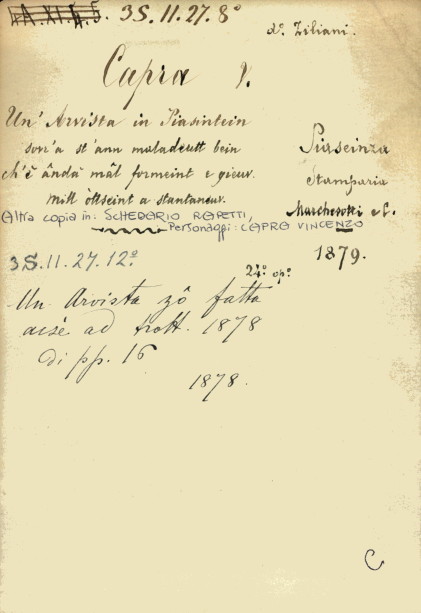 A.XI.4.5. 3S.II.27.8º
dº. Ziliani.
Capra V.
Un' Arvista in Piasintein
son'a st'ann maladeutt bein
ch'è ândà mâl formeint e gieuv.
mill òttseint a stantaneuv.
Piaseinza
Stamparia
Marchesotti e C.
1879.
Altra copia in: SCHEDARIO RAPETTI,
Personaggi: CAPRA VINCENZO
3S.II.27.12º
24º. op.º
Un Arvista zô fatta
acsé ad trott. 1878
di pp. 16
1878.
C